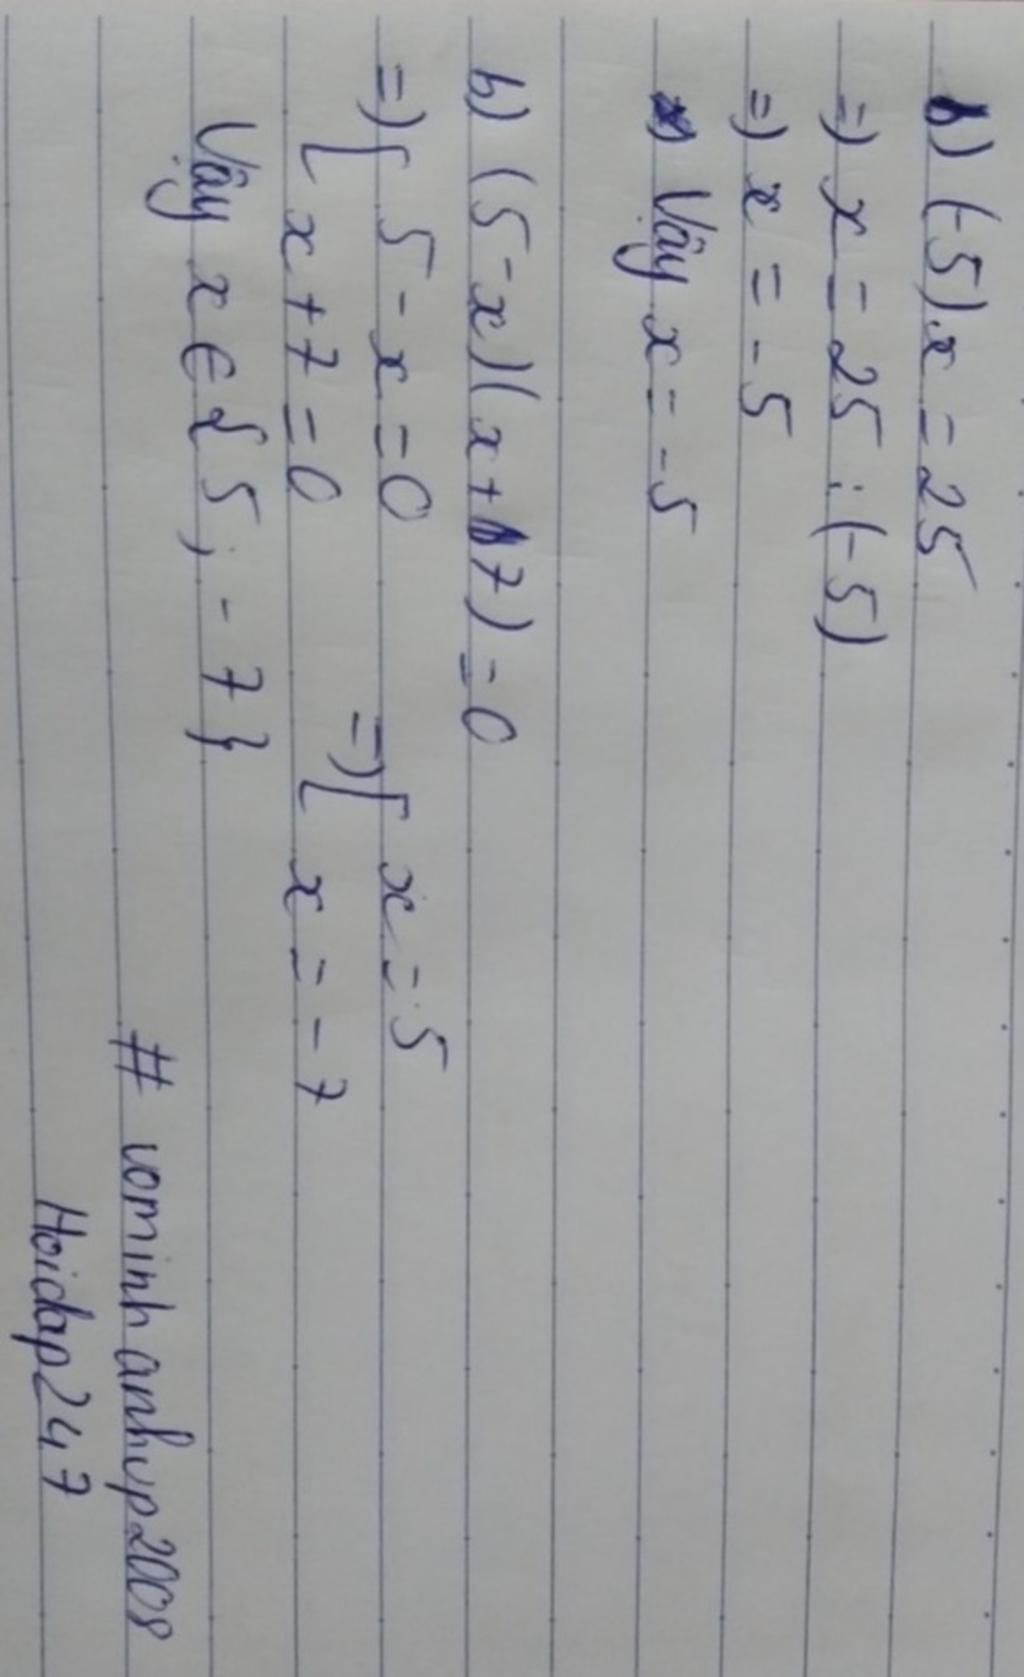 b) (-5).x = 25
=) x = 25 : (-5)
=) x = -5
Vậy x = -5
b) (5-x)(x+7) = 0
=) [ 5 - x = 0 =) [ x = 5
x + 7 = 0 x = -7
Vậy x ∈ {5; -7}
# vominhanhvp2008
Hoidap247